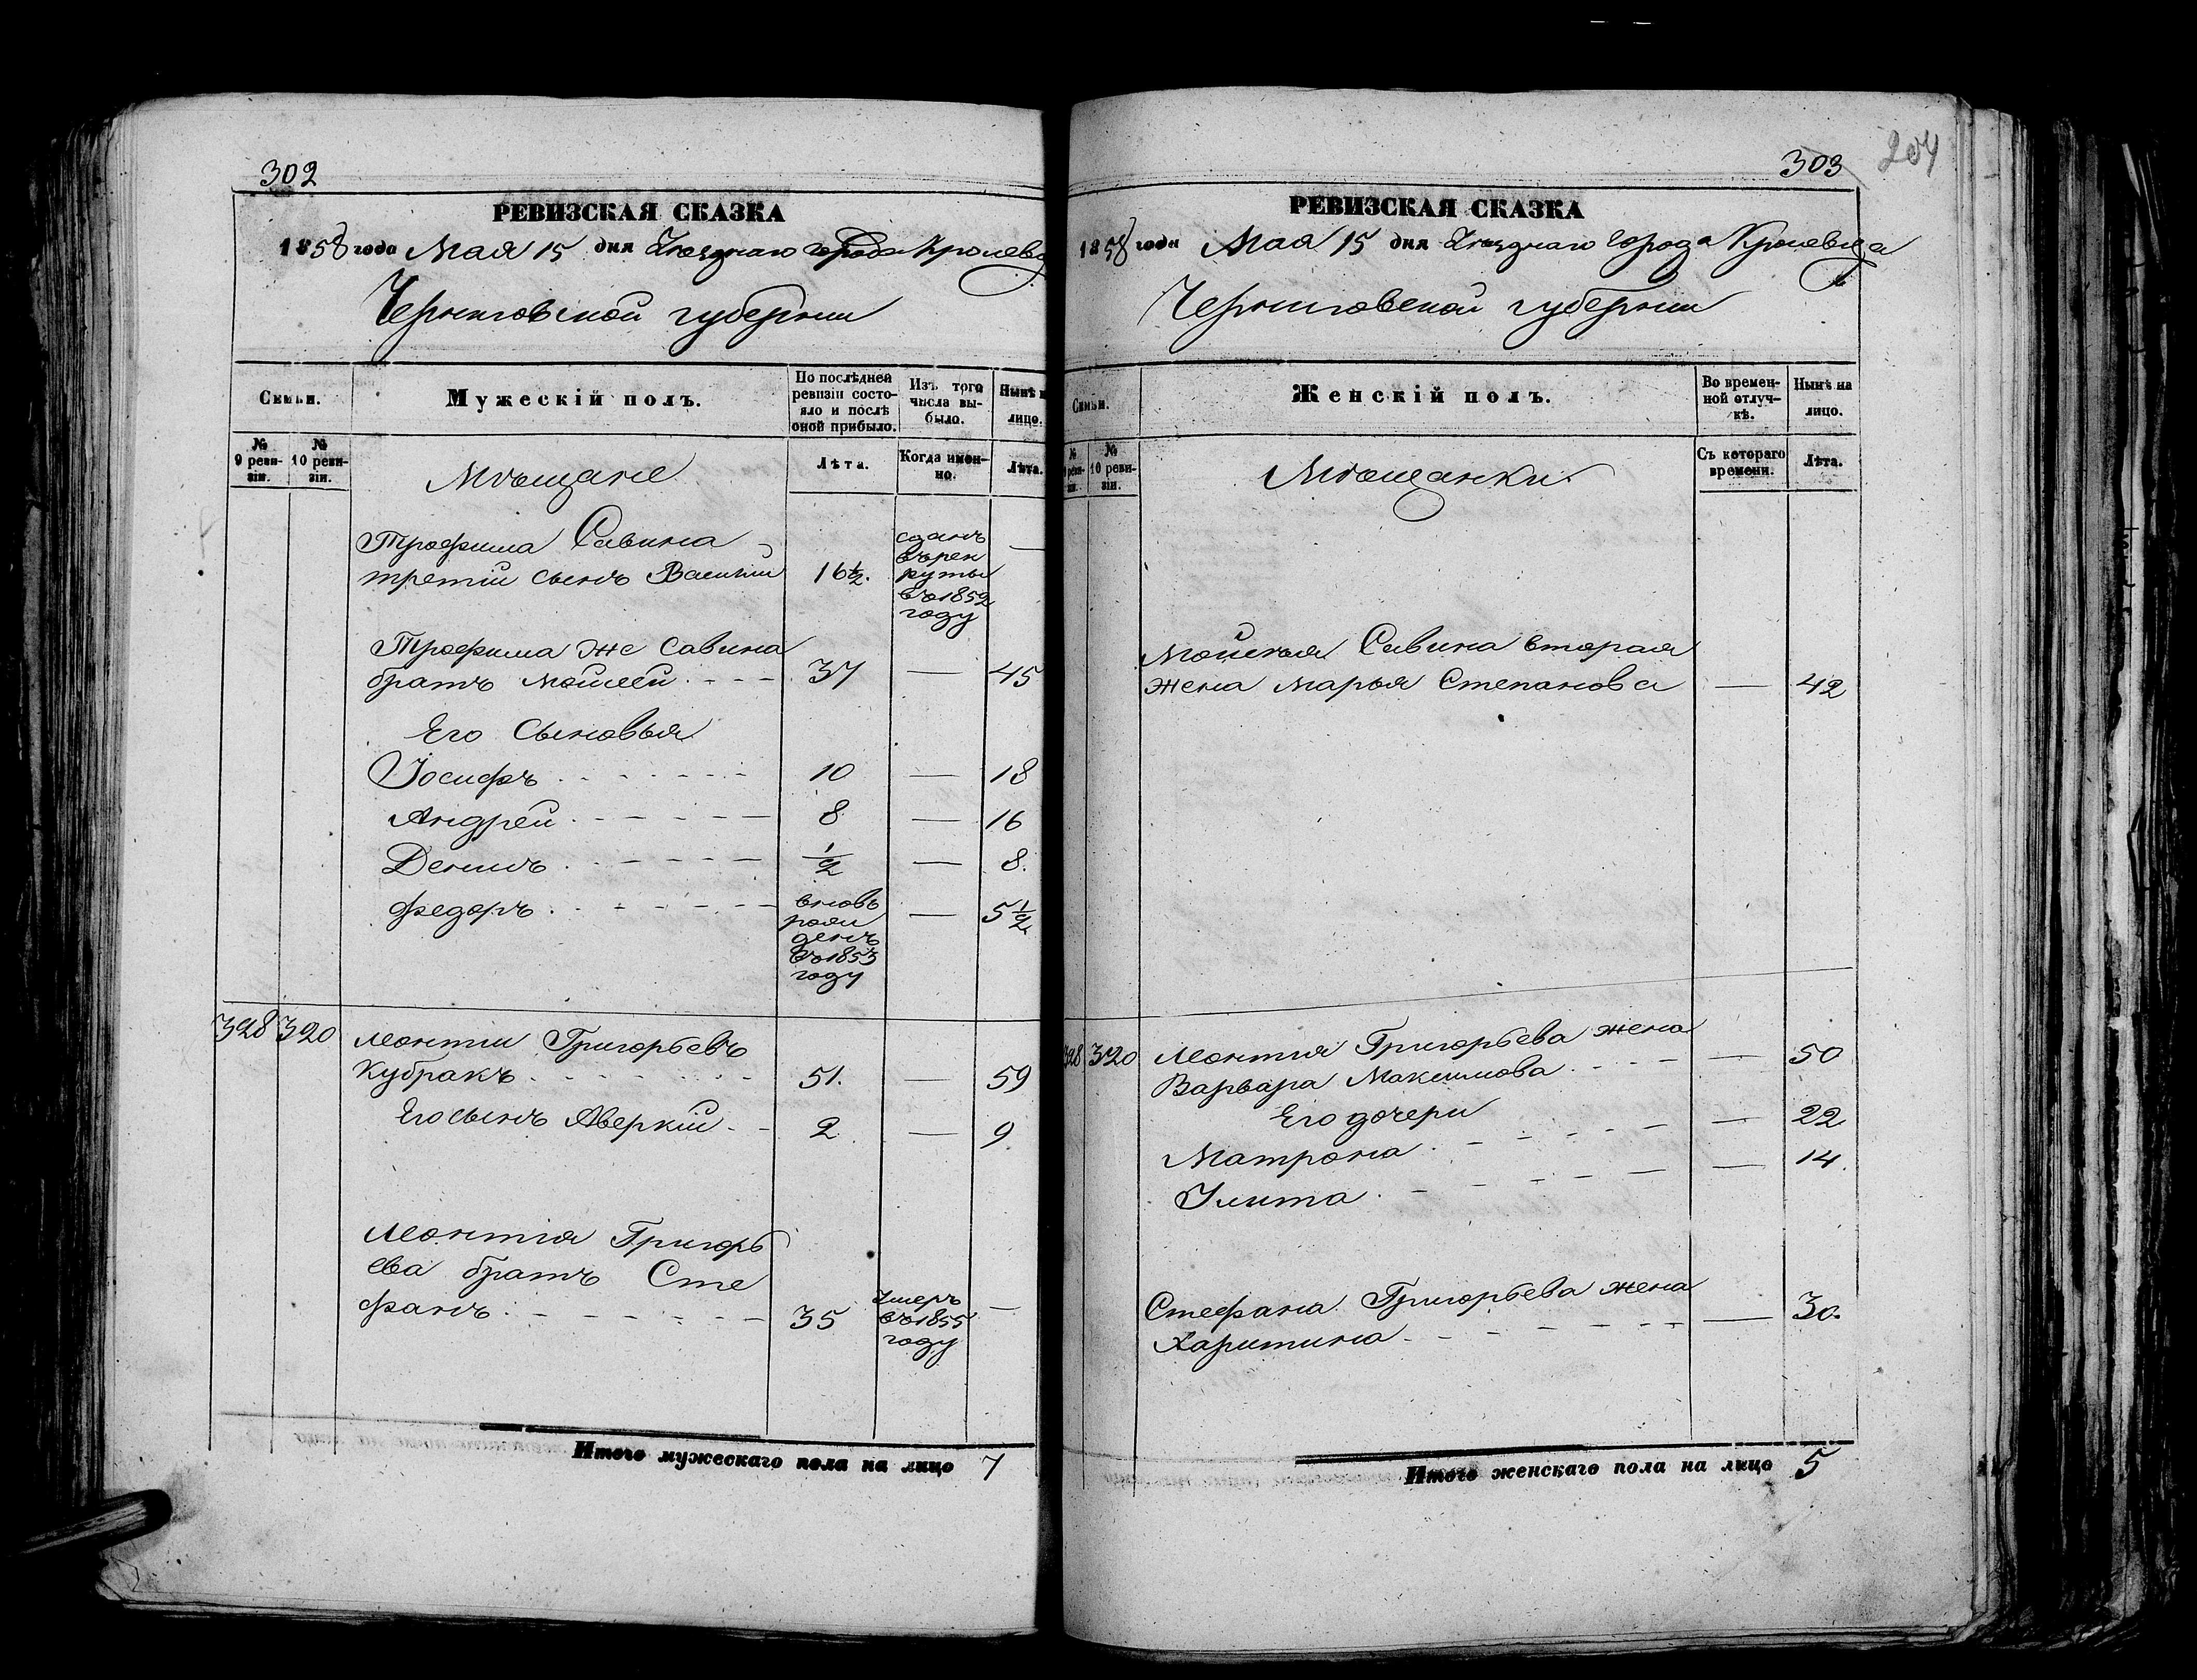 302
РЕВИЗСКАЯ СКАЗКА
1858 года Мая 15 дня Уезднаго города Кролевца
Черниговской губернии
Семьи.
Мужескій полъ.
По послѣдней ревизіи состояло и послѣ оной прибыло.
Изъ того числа выбыло.
Нынѣ на лицо.
№ 9 ревизіи.
№ 10 ревизіи.
Мѣщане
Лѣта.
Когда именно.
Лѣта.
Трофима Савина
третій сынъ Василій 16½. сданъ въ рекруты въ 1852 году —
Трофима же Савина
братъ Моисей 37 — 45
Его Сыновья
Іосифъ 10 — 18
Андрей 8 — 16
Денисъ ½ — 8.
Федоръ вновь рожденъ въ 1853 году — 5½
328 320 Леонтій Григорьевъ
Кубракъ 51. — 59
Его сынъ Аверкій 2 — 9.
Леонтія Григорь
ева братъ Сте
фанъ 35 Умеръ въ 1855 году —
Итого мужескаго пола на лицо 7
303
204
РЕВИЗСКАЯ СКАЗКА
1858 года Мая 15 дня Уезднаго города Кролевца
Черниговской губернии
Семьи.
Женскій полъ.
Во временной отлучкѣ.
Нынѣ на лицо.
№ 9 ревизіи.
№ 10 ревизіи.
Мѣщанки.
Съ котораго времени.
Лѣта.
Моисея Савина вторая
жена Марья Степанова — 42
328 320 Леонтия Григорьева жена
Варвара Максимова — 50
Его дочери
Матрона — 22
Улита — 14.
Стефана Григорьева жена
Харитина — 30.
Итого женскаго пола на лицо 5